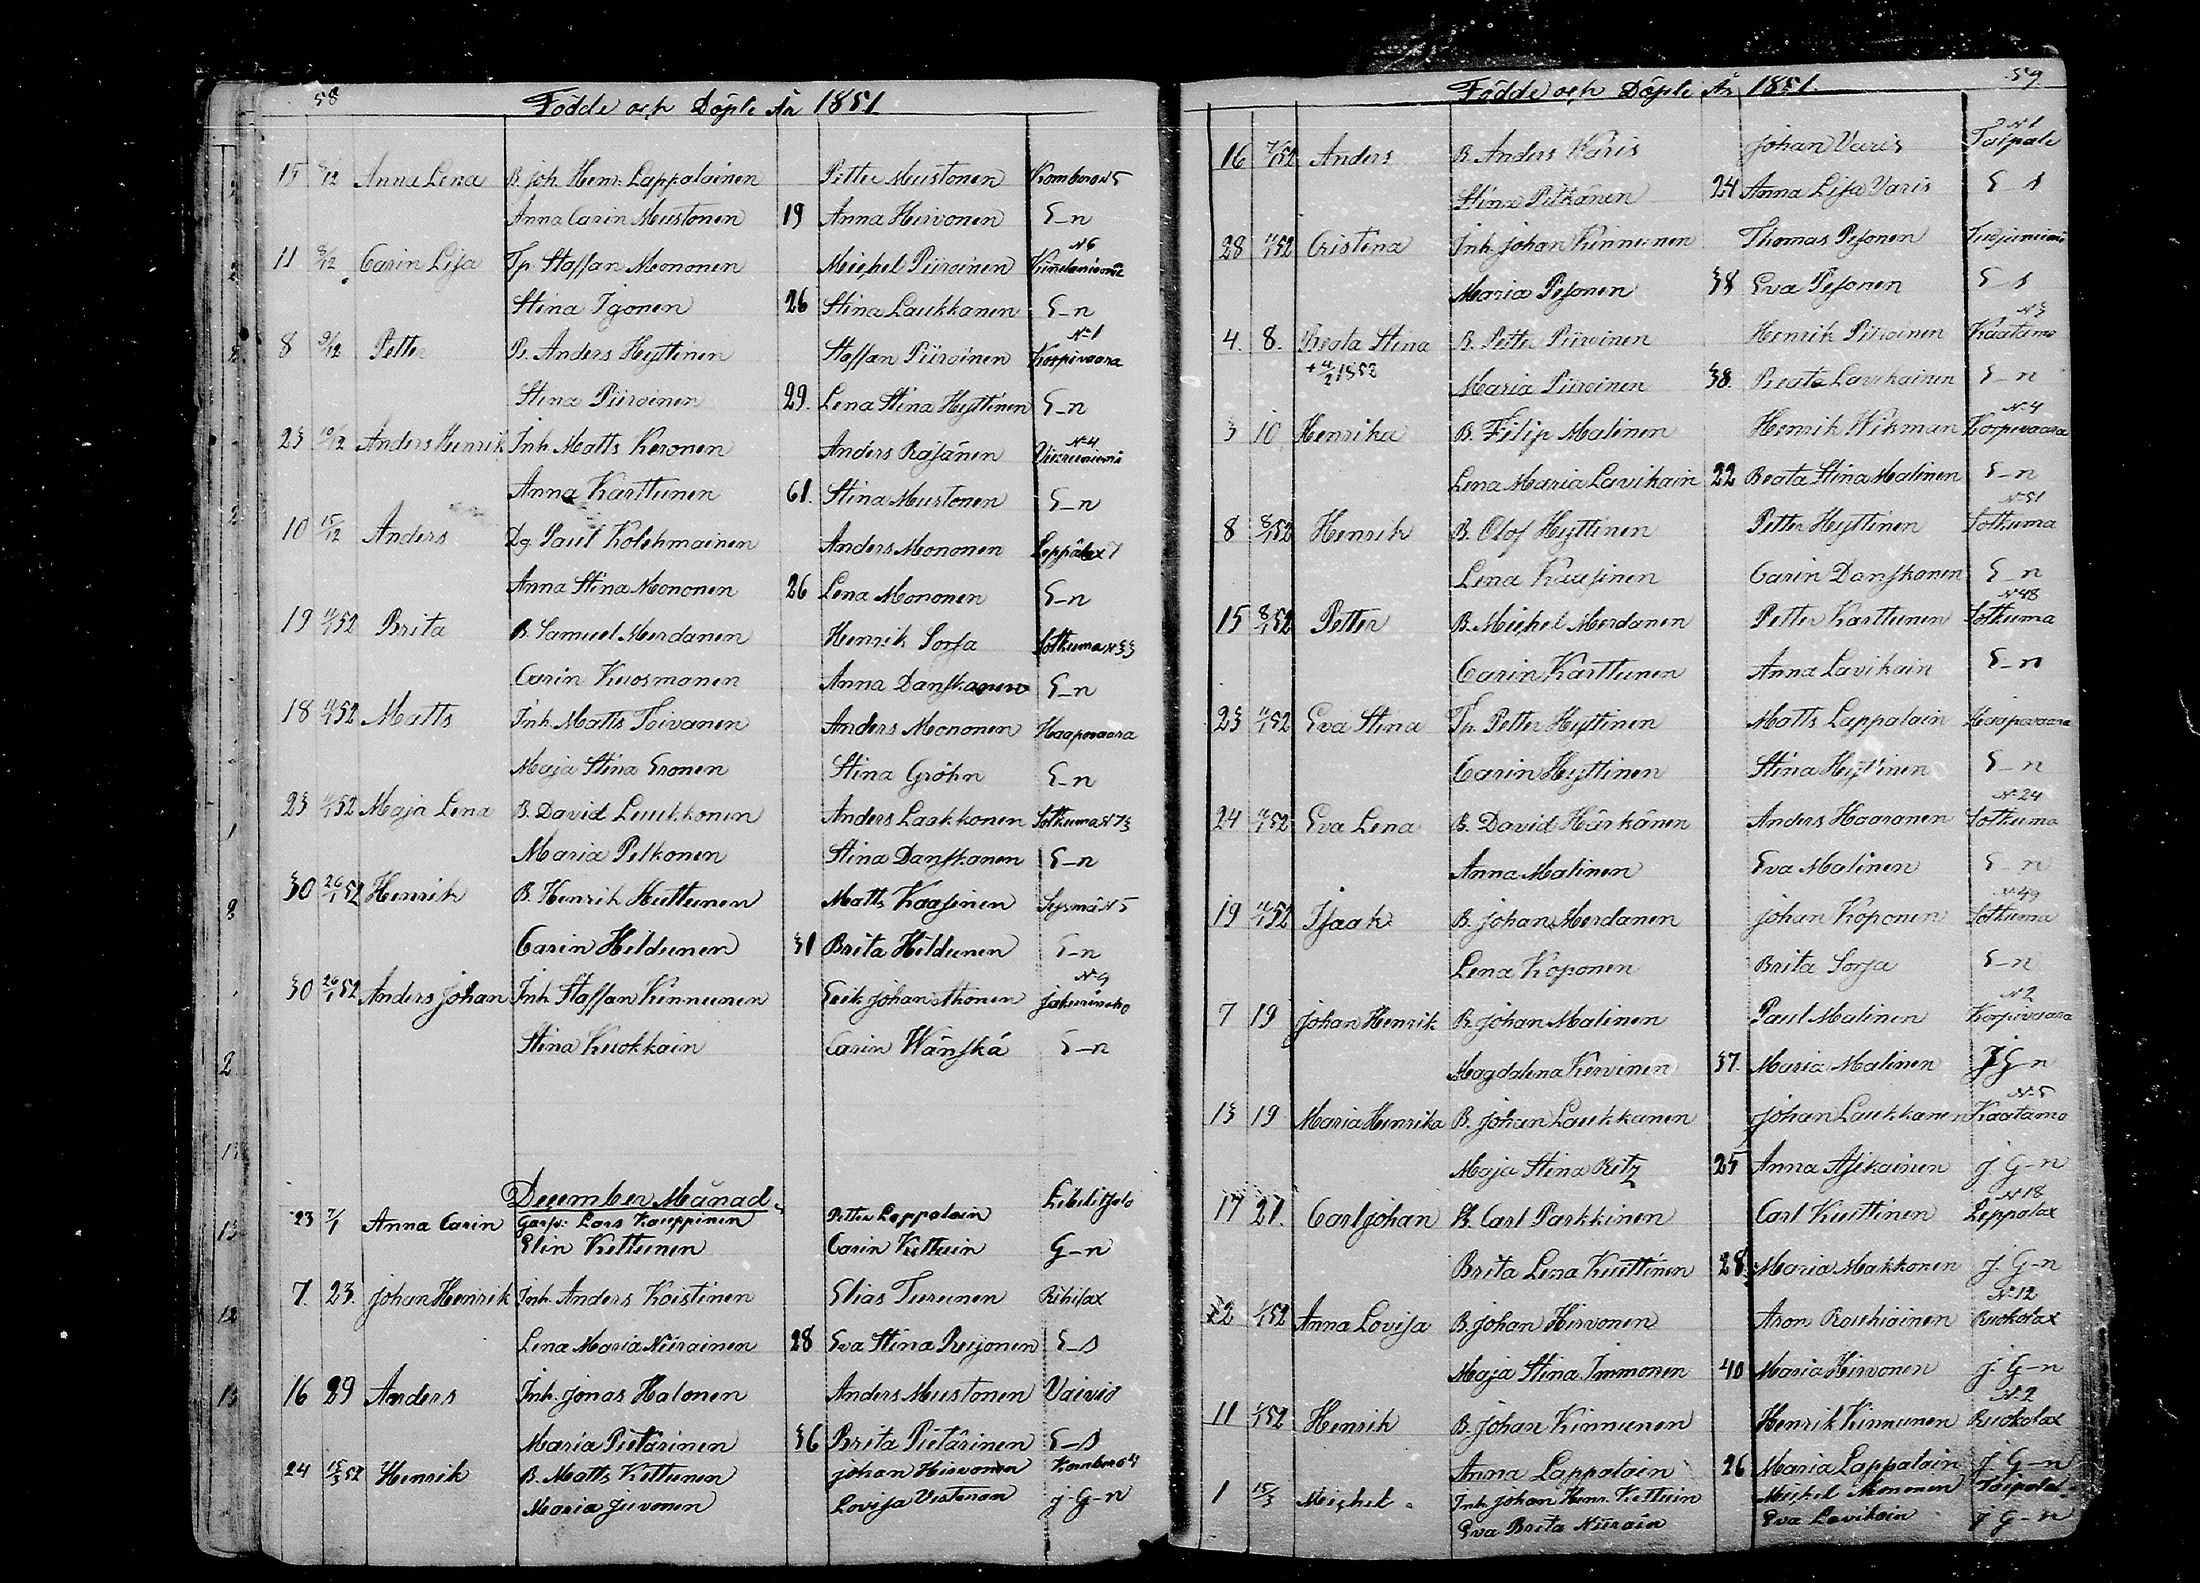 58
Födde och Döpte År 1851
15 8/12 Anna Lena B. Joh. Henr. Lappalainen Petter Mustonen Kombero N 5
Anna Carin Mustonen 19 Anna Hirvonen E-n
11 8/12 Carin Lisa Tp. Staffan Mononen Michel Piiroinen N 6
Stina Igonen 26 Stina Laukkanen E-n
8 9/12 Petter B. Anders Hyttinen Staffan Piiroinen N 1 Korpivaara
Stina Piiroinen 29. Lena Stina Hyttinen E-n
23 10/12 Anders Henrik Inh. Matts Keronen Anders Räsänen N 4 Viininiemi
Anna Karttunen 61. Stina Mustonen E-n
10 15/12 Anders Dg. Paul Kolehmainen Anders Mononen Leppälax 7
Anna Stina Mononen 26 Lena Mononen E-n
19 11/1 52 Brita B. Samuel Merdanen Henrik Sorsa Sotkuma N 33
Carin Kuosmanen Anna Danskanen E-n
18 11/1 52 Matts Inh. Matts Toivanen Anders Mononen Haapovaara
Maja Stina Eronen Stina Gröhn E-n
23 11/1 52 Maja Lena B. David Luukkonen Anders Laakkonen Sotkuma N 73
Maria Pelkonen Stina Danskanen E-n
30 26/1 52 Henrik B. Henrik Huttunen Matts Kaasinen Sysmä N 5
Carin Hildunen 31 Brita Hildunen E-n
30 26/1 52 Anders Johan Inh. Staffan Kinnunen Erik Johan Ahonen N 9
Stina Kuokkain Carin Wänskä E-n
December Månad
23 7/1 Anna Carin Lars Kauppinen Petter Lappalain
Elin Kettunen Carin Kettuin G-n
7. 23. Johan Henrik Inh. Anders Koistinen Elias Turunen Rihilax
Lena Maria Niirainen 28 Eva Stina Reijonen E-s
16 29 Anders Inh. Jonas Halonen Anders Mustonen Vaivio
Maria Pietärinen 36 Brita Pietärinen E-s
24 15/3 52 Henrik B. Matts Kettunen Johan Hirvonen Kombero 4
Maria Juvonen Lovisa Vesteren J. G-n
59
Födde och Döpte År 1851
16 7/1 52 Anders B. Anders Varis Johan Varis N 1 Taipale
Stina Pitkänen 24 Anna Lisa Varis E-s
28 11/1 52 Cristina Inh. Johan Kinnunen Thomas Pesonen
Maria Pesonen 38 Eva Pesonen E-s
4. 8. Beata Stina B. Petter Piiroinen Henrik Piiroinen N 3 Kaatamo
+ 4/2 1852 Maria Piiroinen 38. Beata Lavikainen E-n
3 10 Henrika B. Filip Malinen Henrik Wikman N 4 Korpivaara
Lena Maria Lavikain 22 Beata Stina Malinen E-n
8 8/1 52 Henrik B. Olof Hyttinen Petter Hyttinen N 51 Sotkuma
Lena Kaasinen Carin Danskanen E-n
15 8/1 52 Petter B. Michel Merdanen Petter Karttunen N 48 Sotkuma
Carin Karttunen Anna Lavikain E-n
23 11/1 52 Eva Stina Tp. Petter Hyttinen Matts Lappalain Haapovaara
Carin Hyttinen Stina Hyttinen E-n
24 11/1 52 Eva Lena B. David Härkänen Anders Haaranen N 24 Sotkuma
Anna Malinen Eva Malinen E-n
19 11/1 52 Isaak B. Johan Merdanen Johan Koponen N 49 Sotkuma
Lena Koponen Brita Sorsa E-n
7 19 Johan Henrik B. Johan Malinen Paul Malinen N 2 Korpivaara
Magdalena Kervinen 37. Maria Malinen J G-n
13 19 Maria Henrika B. Johan Laukkanen Johan Laukkanen N 5 Kaatamo
Maja Stina Ritz 25 Anna Asikainen J. G-n
17 27. Carl Johan B. Carl Parkkinen Carl Kuittinen N 18 Leppälax
Brita Lena Kuittinen 28. Maria Makkonen J. G-n
22 1/1 52 Anna Lovisa B. Johan Hirvonen Aron Rouhiainen N 12 Ruokolax
Maja Stina Immonen 40 Maria Hirvonen J. G-n
11 1/1 52 Henrik B. Johan Kinnunen Henrik Kinnunen N 2 Ruokolax
Anna Lappalain 26 Maria Lappalain J. G-n
1 15/3 Michel Inh. Johan Henr. Kettuin Michel Mononen Taipale
Eva Brita Niirain Eva Lavikain J G-n